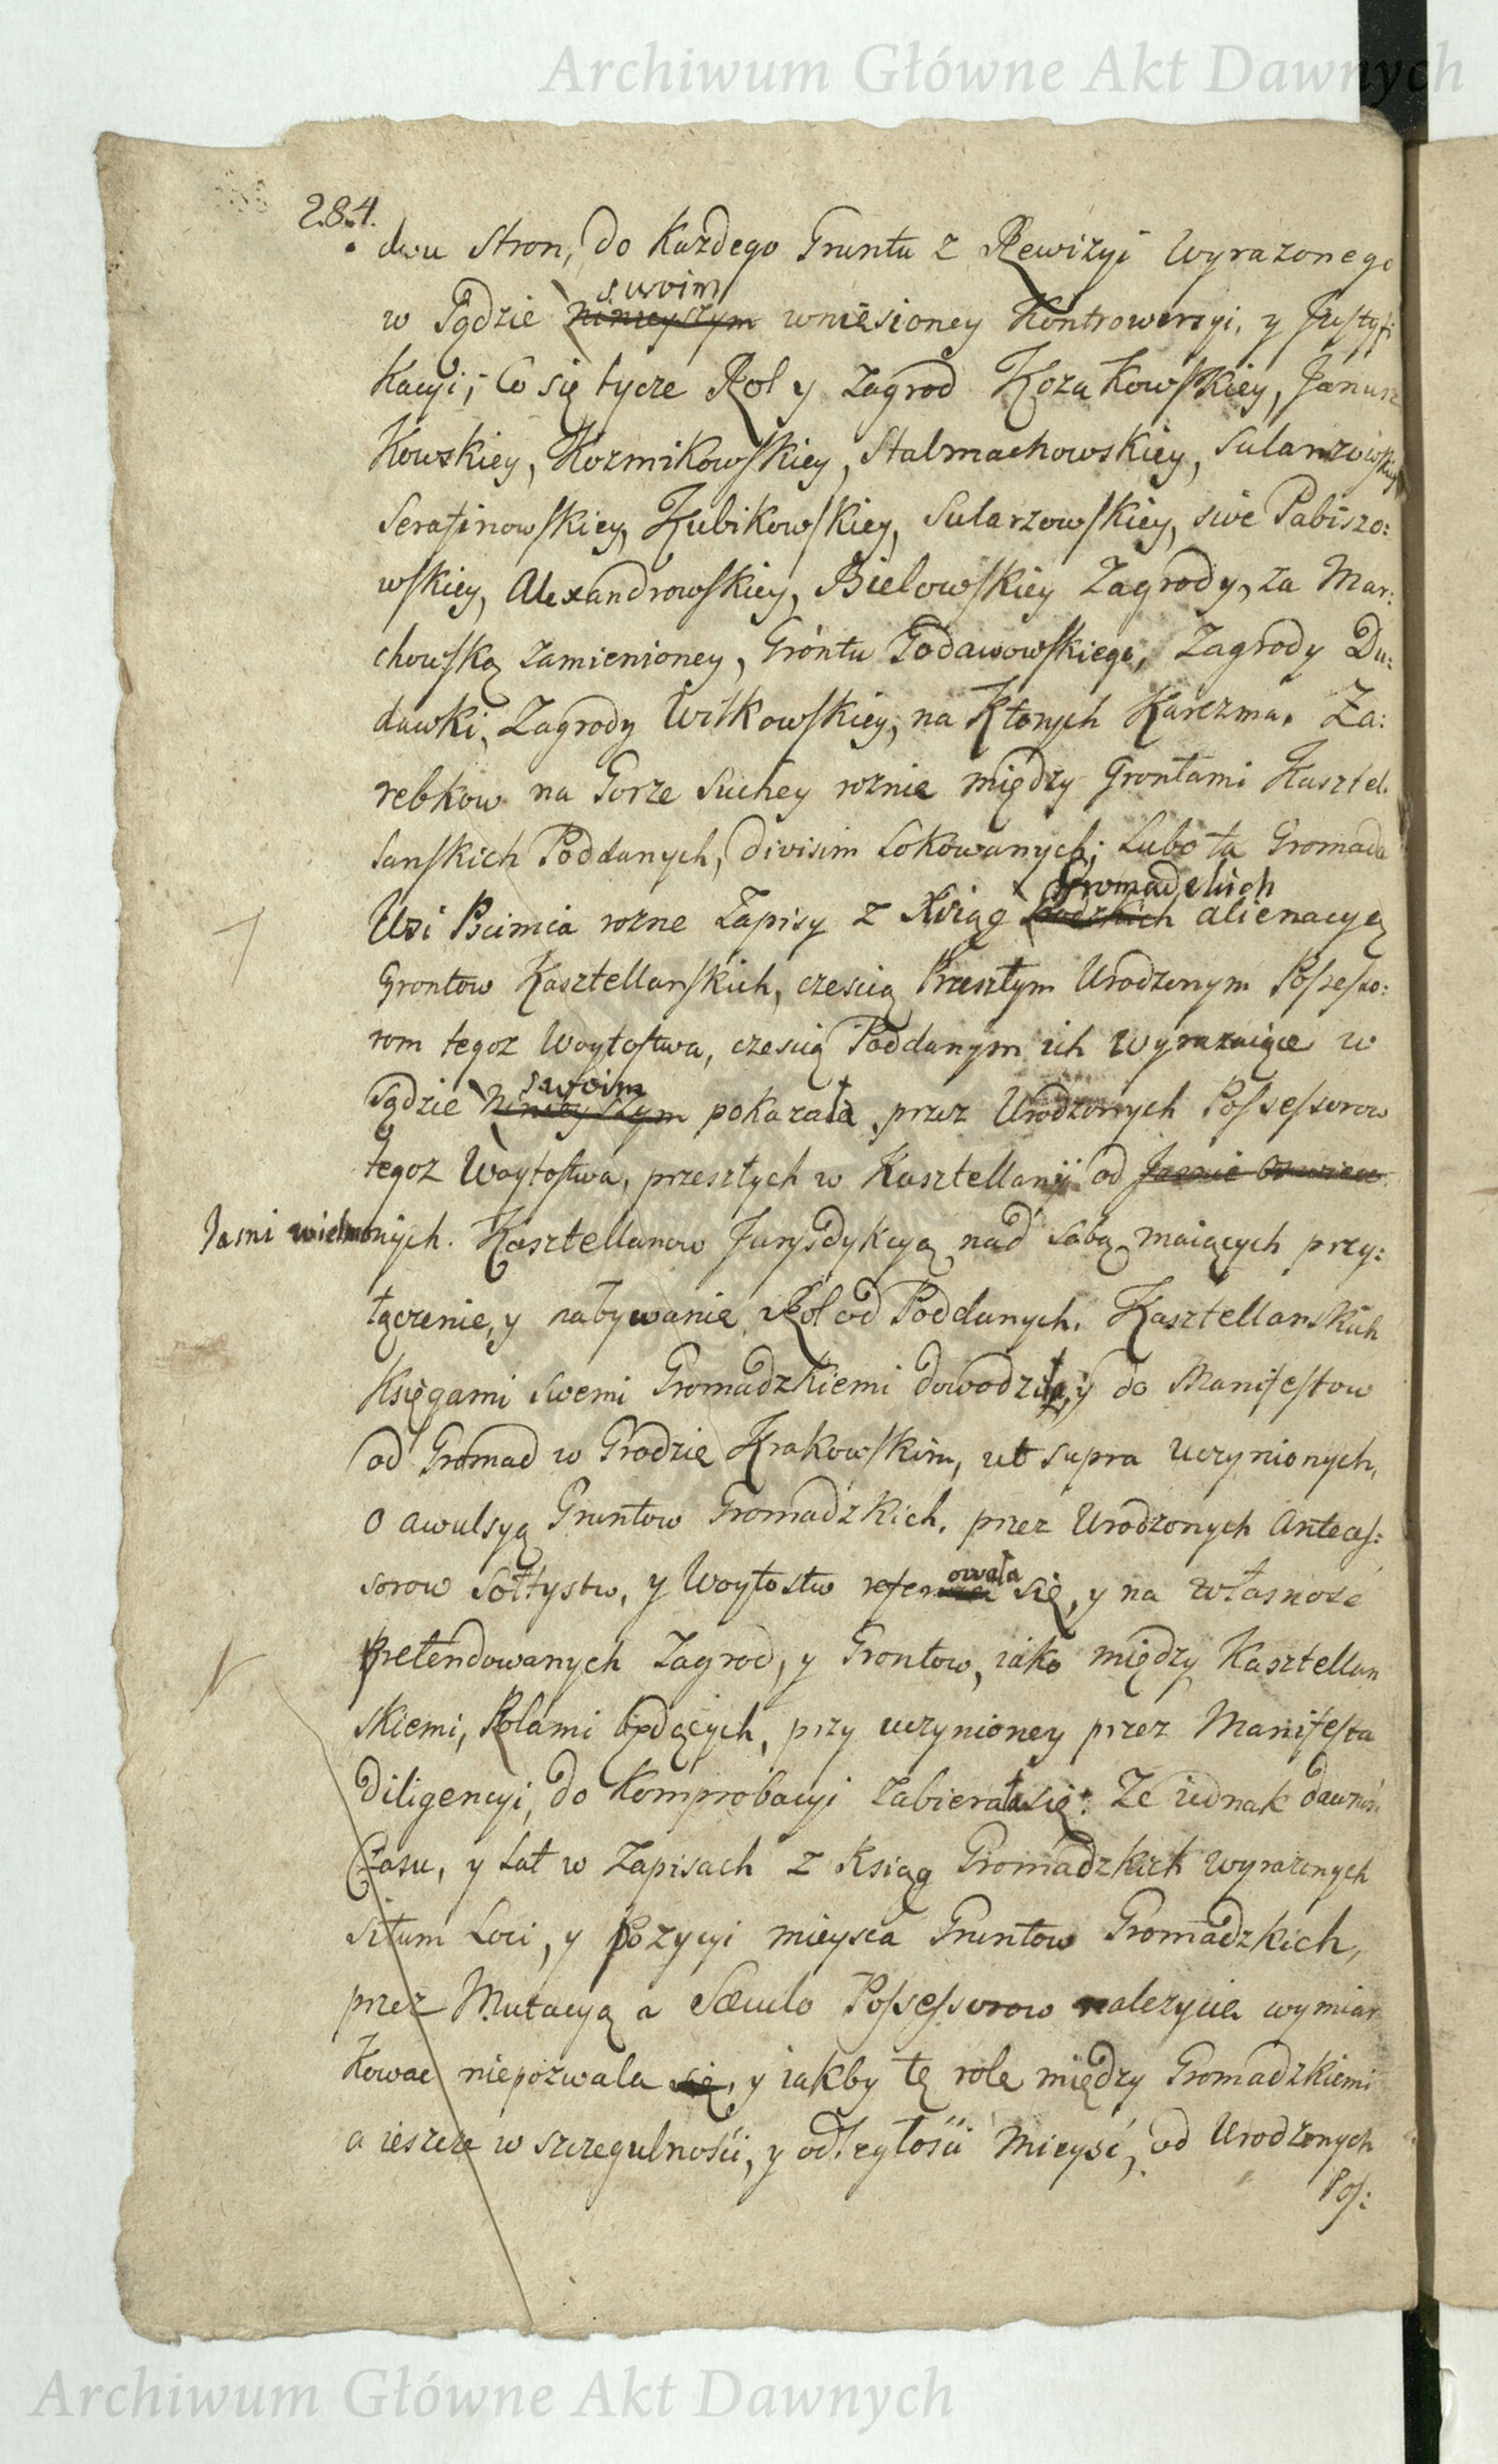 Archiwum Główne Akt Dawnych
284.
dwu Stron, do Każdego Gruntu z Rewizyi wyrazonego
swoim
w Sądzie ninieyszym wniesioney Kontrowersyi, y Justyfi
kacyi, Co się tycze Rol y Zagrod Kozakowskiey, Janusz
kowskiey, Kozmikowskiey, Stalmachowskiey, Sularzowskiey
Serafinowskiey, Kubikowskiey, Sularzowskiey, sive Pabiszo:
wskiey, Alexandrowskiey, Bielowskiey Zagrody, za Mar:
chowską zamienioney, Gróntu Godawowskiego, Zagrody Du:
dawki, Zagrody Wilkowskiey, na Ktorych Karczma. Za:
rebkow na Gorze Suchey roznie między Grontami Kasztel.
lanskich Poddanych, divisim Lokowanych; Lubo ta Gromada
Gromadzkich
Wsi Pcimia rozne Zapisy z Xsiąg alienacyą
Grontow Kasztellanskich, czescią Przeszłym Urodzonym Possesso:
rom tegoz Woytostwa, czescią Poddanym ich wyrazaiące w
swoim
Sądzie ninieyszym pokazała, przez Urodzonych Possessorow
tegoz Woytostwa, przeszłych w Kasztellanii od Jasnie Oswiec.
Jasni wielmonych. Kasztellanow Jurysdykcyą nad sobą maiących przy:
łączenie, y nabywanie Rol od Poddanych. Kasztellanskich
Księgami swemi Gromadzkiemi dowodziła, y do Manifestow
od Gromad w Grodzie Krakowskim, ut supra uczynionych,
o awulsyą Gruntow Gromadzkich. przez Urodzonych Anteces:
owała
sorow Sołtystw, y Woytostw refer się, y na własność
pretendowanych Zagrod, y Grontow, iako między Kasztellan
skiemi, Rolami będących, przy uczynioney przez Manifesta
Diligencyi, do Komprobacyi zabierała się: Ze iednak dawność
Czasu, y Lat w Zapisach z Ksiąg Gromadzkich wyrazonych
situm Loci, y pozycyi mieysca Gruntow Gromadzkich,
przez Mutacyą a Sæculo Possessorow nalezycie wymiar
kować niepozwala się, y iakby tę role między Gromadzkiemi
a ieszcze w szczegulności, y odległości Mieysć, od Urodzonych
Pos:
Archiwum Główne Akt Dawnych